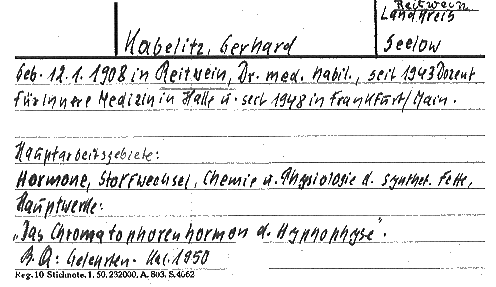 Reitwein
Landkreis
Kabelitz, Gerhard
Seelow
Geb. 12.1.1908 in Reitwein, Dr. med. habil., seit 1943 Dozent
für innere Medizin in Halle u. seit 1948 in Frankfurt/Main.
Hauptarbeitsgebiete:
Hormone, Stoffwechsel, Chemie u. Physiologie d. synthet. Fette.
Hauptwerke:
„Das Chromatophorenhormon d. Hypnophyse".
B.Q.: Gelehrten-Kal. 1950
Reg. 10 Sticknote. 1. 50. 232000. A. 803. S. 4662